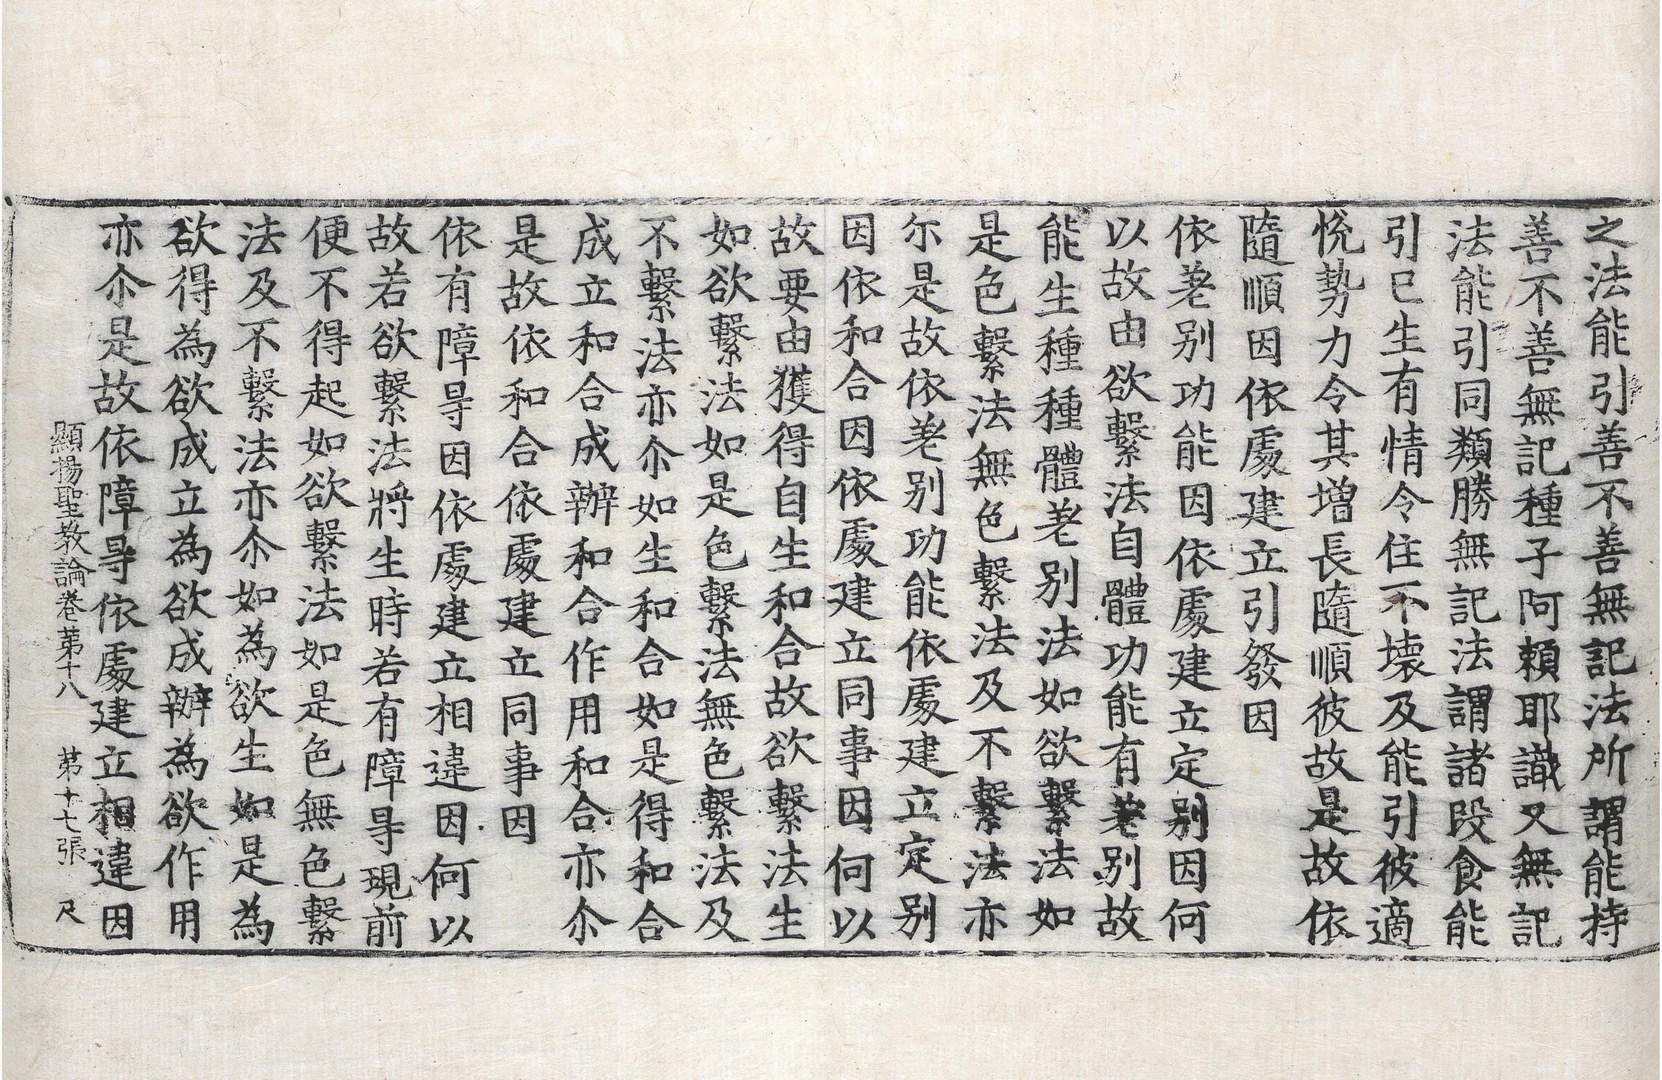 之法能引善不善無記法所謂能持
善不善無記種子阿頼耶識又無記
法能引同類勝無記法謂諸段食能
引已生有情令住不壞及能引彼適
悅勢力令其增長隨順彼故是故依
隨順因依處建立引發因
依差别功能因依處建立定别因何
以故由欲繫法自體功能有差别故
能生種種體差别法如欲繫法如
是色繫法無色繫法及不繫法亦
尒是故依差别功能依處建立定别
因依和合因依處建立同事因何以
故要由獲得自生和合故欲繫法生
如欲繫法如是色繫法無色繫法及
不繫法亦尒如生和合如是得和合
成立和合成辦和合作用和合亦尒
是故依和合依處建立同事因
依有障㝵因依處建立相違因何以
故若欲繫法將生時若有障㝵現前
便不得起如欲繫法如是色無色繫
法及不繫法亦尒如為欲生如是為
欲得為欲成立為欲成辦為欲作用
亦尒是故依障㝵依處建立相違因
顯揚聖教論卷第十八 第十七張 尺